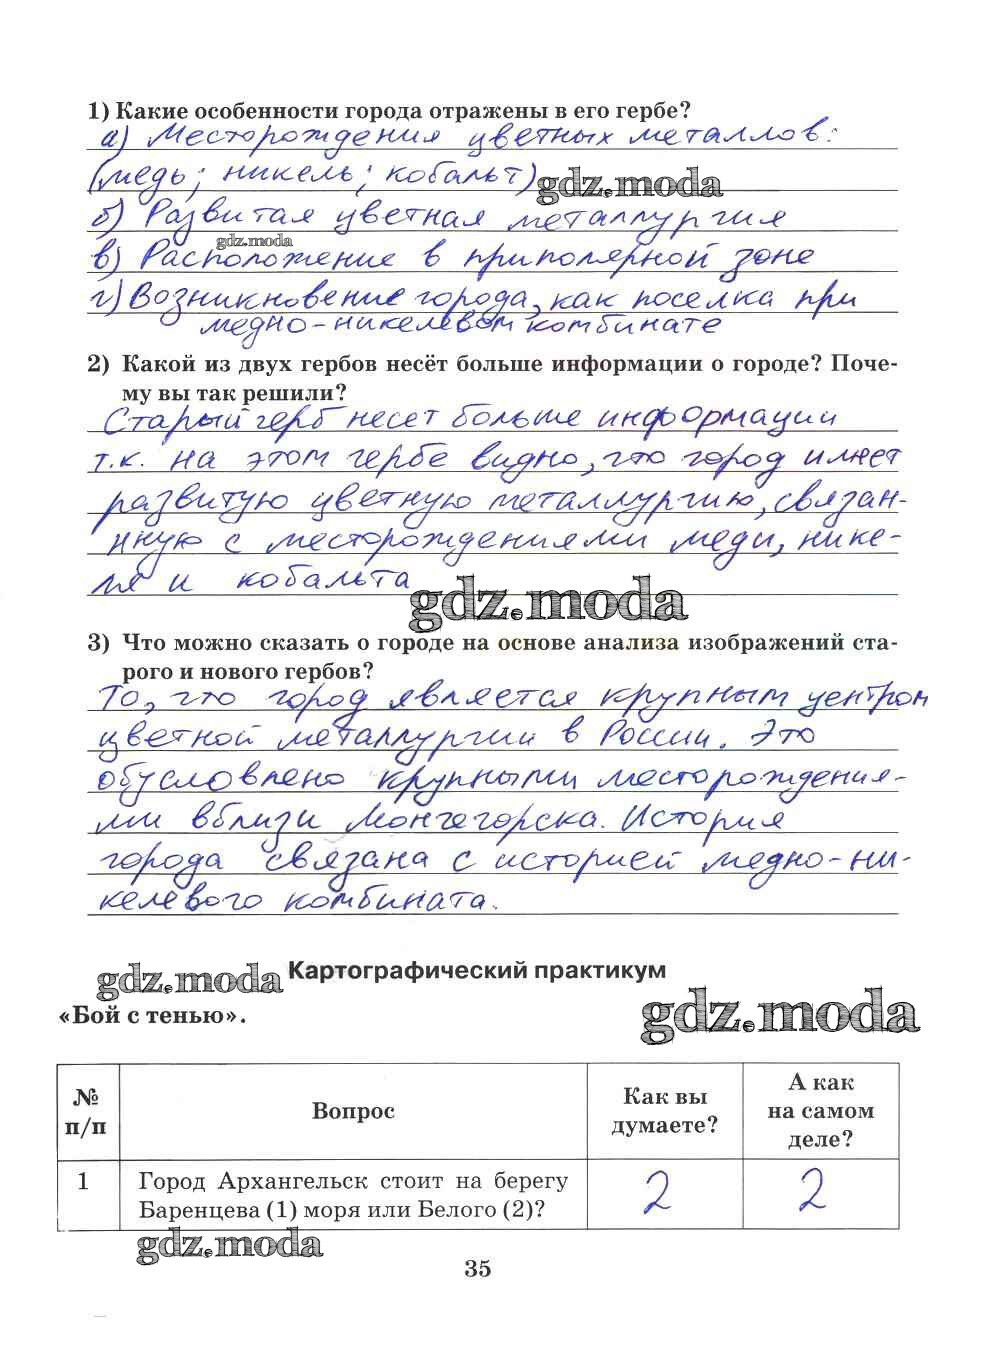 1) Какие особенности города отражены в его гербе?
а) Месторождения цветных металлов:
(медь; никель; кобальт)
gdz.moda
б) Развитая цветная металлургия
gdz.moda
в) Расположение в приполярной зоне
г) Возникновение города, как поселка при
медно-никелевом комбинате
2) Какой из двух гербов несёт больше информации о городе? Поче-
му вы так решили?
Старый герб несет больше информации
т.к. на этом гербе видно, что город имеет
развитую цветную металлургию, связан-
нную с месторождениями меди, нике-
ля и кобальта
gdz.moda
3) Что можно сказать о городе на основе анализа изображений ста-
рого и нового гербов?
То, что город является крупным центром
цветной металлургии в России. Это
обусловлено крупными месторождения-
ми вблизи Мончегорска. История
города связана с историей медно-ни-
келевого комбината.
gdz.moda
Картографический практикум
«Бой с тенью».
gdz.moda
№ п/п
Вопрос
Как вы думаете?
А как на самом деле?
1
Город Архангельск стоит на берегу
Баренцева (1) моря или Белого (2)?
2
2
gdz.moda
35